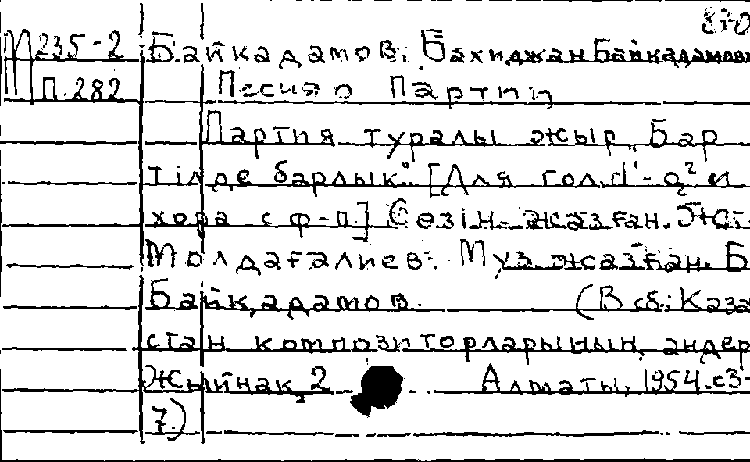 870
М235-2 Байкадамов, Бахиджан Байкадамов
П.282 Песня о Партии
Партия туралы жыр. "Бар
тілде барлык". [Для гол. d'-g² и
хора с ф-п.] Сөзін жазған.
Молдағалиев. Муз жазған. Б
Байқадамов. (В сб: Каза
стан композиторларының әндер
Жыйнак, 2 Алматы, 1954. с3-
7.)